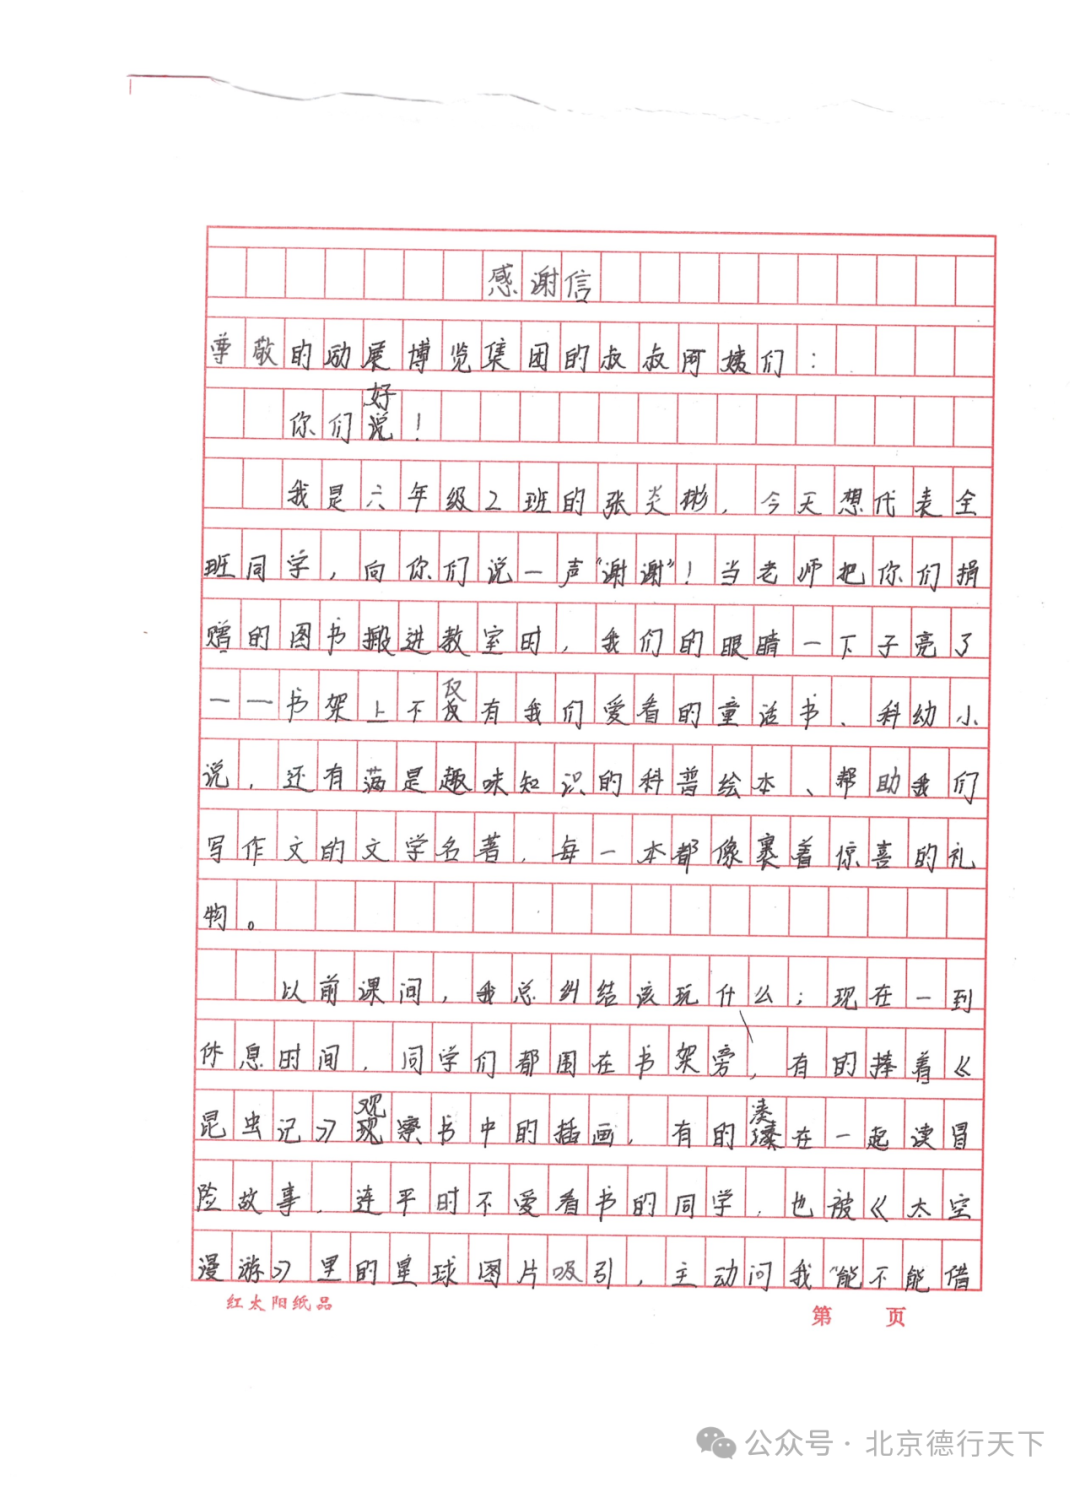 感谢信
尊敬的动展博览集团的叔叔阿姨们：
你们好！
我是六年级2班的张炎彬，今天想代表全
班同学，向你们说一声“谢谢”！当老师把你们捐
赠的图书搬进教室时，我们的眼睛一下子亮了
——书架上不仅有我们爱看的童话书、科幼小
说，还有满是趣味知识的科普绘本、帮助我们
写作文的文学名著，每一本都像裹着惊喜的礼
物。
以前课间，我总纠结该玩什么；现在一到
休息时间，同学们都围在书架旁，有的捧着《
昆虫记》观察书中的插画，有的凑在一起读冒
险故事，连平时不爱看书的同学，也被《太空
漫游》里的星球图片吸引，主动问我“能不能借
红太阳纸品
第 页
公众号·北京德行天下